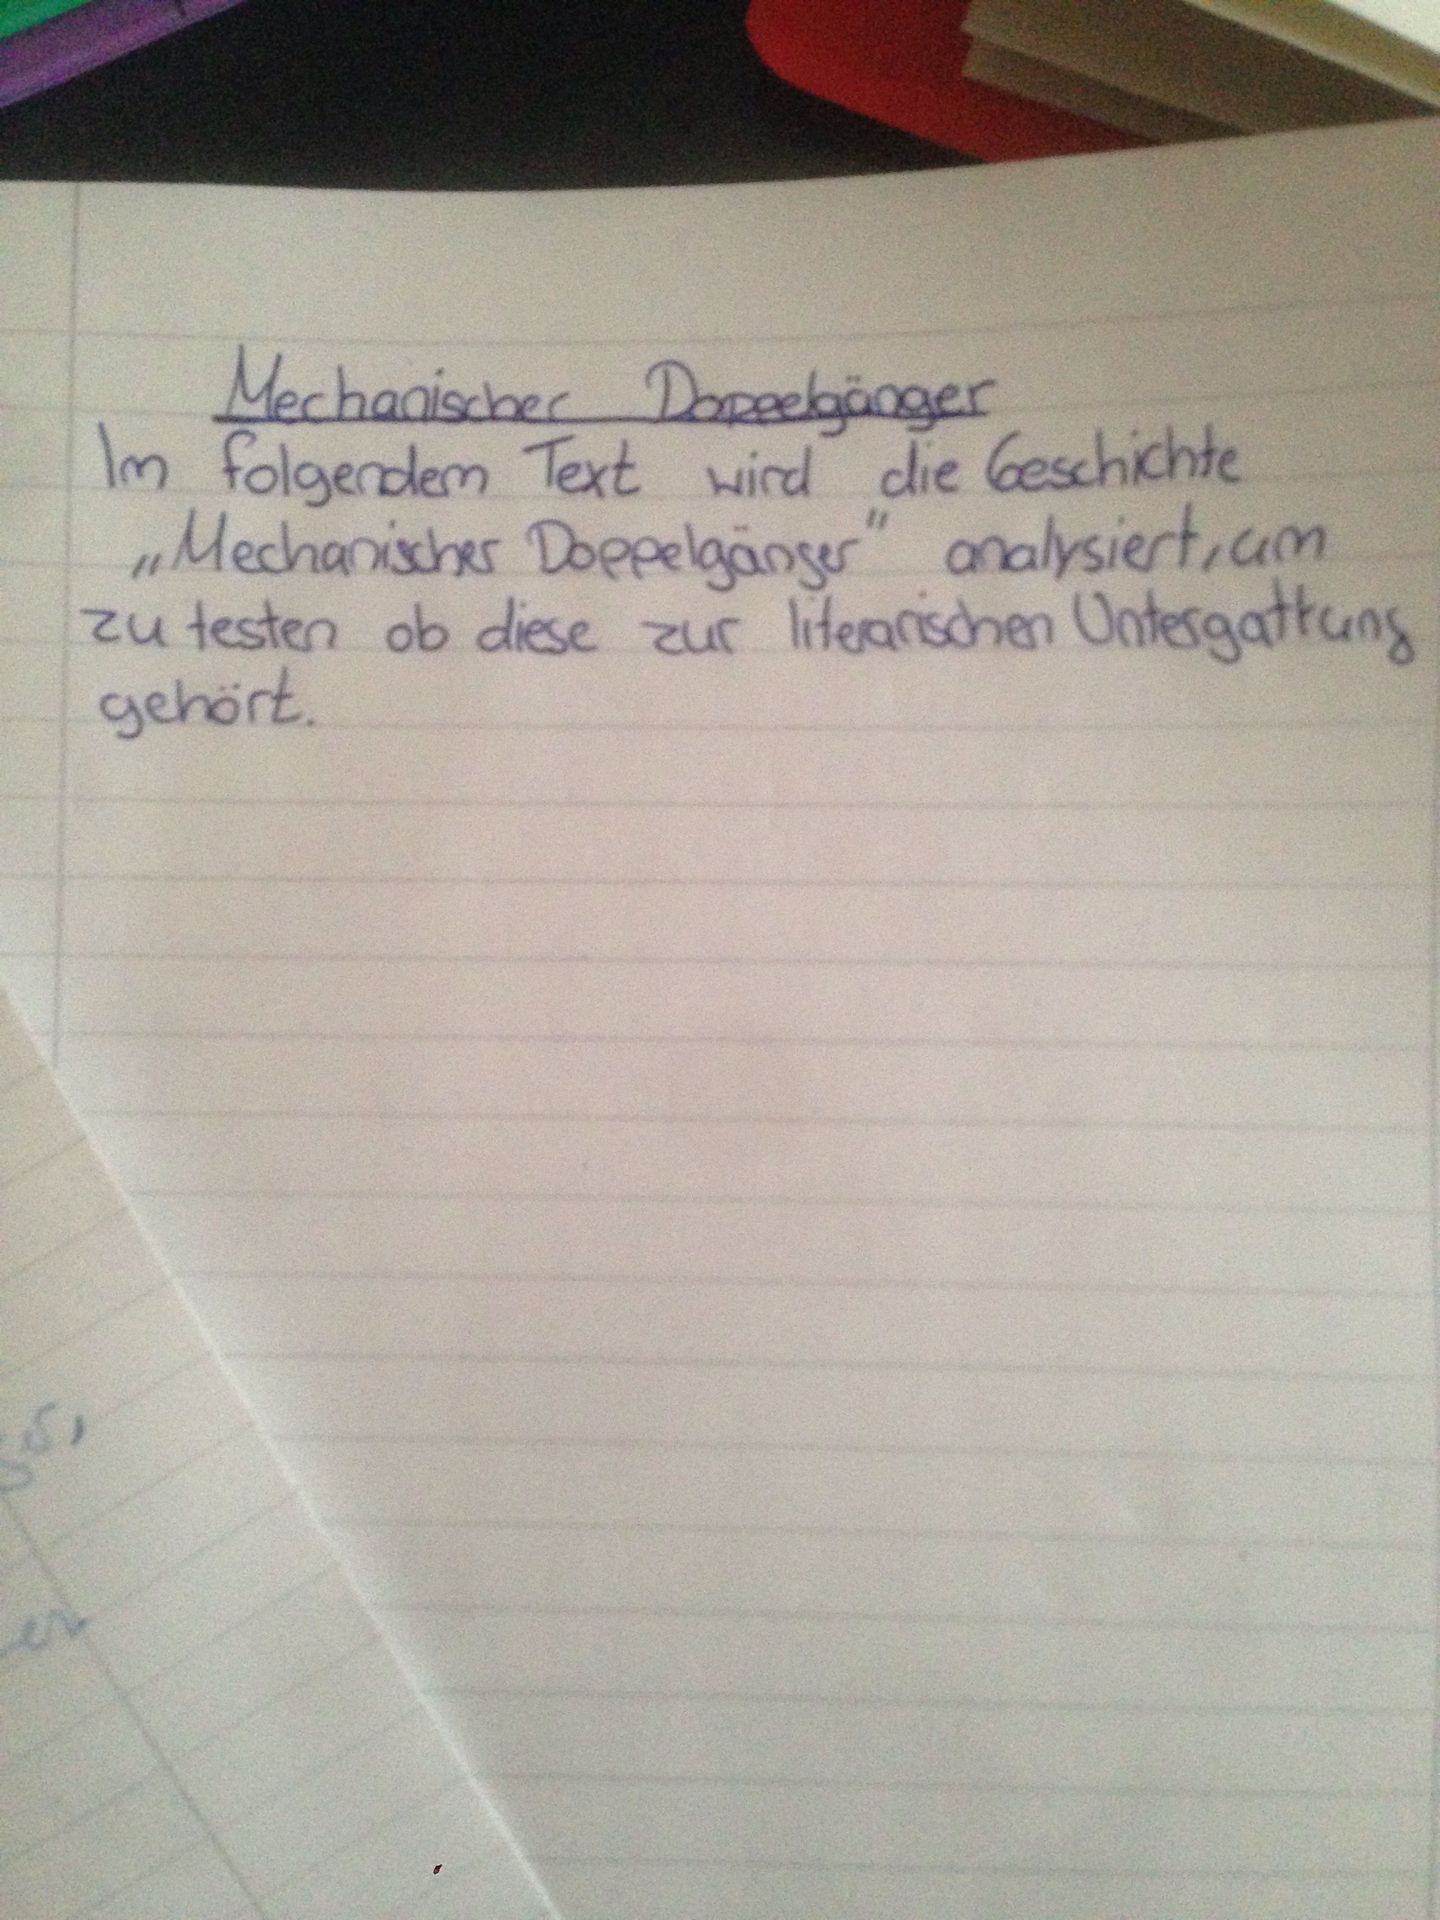 Mechanischer Doppelgänger
Im folgendem Text wird die Geschichte
„Mechanischer Doppelgänger" analysiert, um
zu testen ob diese zur literarischen Untergattung
gehört.
er